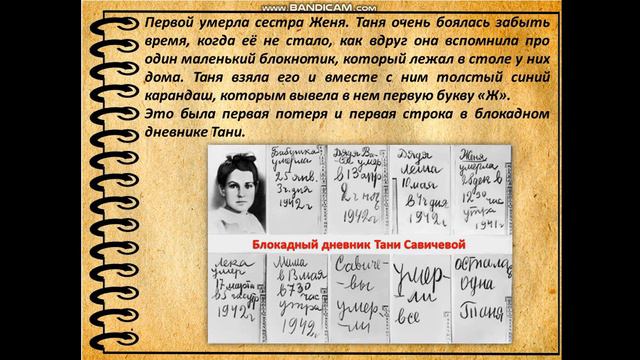 www.BANDICAM.com
Первой умерла сестра Женя. Таня очень боялась забыть
время, когда её не стало, как вдруг она вспомнила про
один маленький блокнотик, который лежал в столе у них
дома. Таня взяла его и вместе с ним толстый синий
карандаш, которым вывела в нем первую букву «Ж».
Это была первая потеря и первая строка в блокадном
дневнике Тани.
Бабушка
умерла
25 янв.
3ч. дня
1942 г
Дядя Ва-
ся умер
в 13 апр
2 ч ноч
1942 г
Дядя
Леша
10 мая
в 4ч дня
1942 г
Женя
умерла
28 дек в
12 30
час
утра
1941 г
Блокадный дневник Тани Савичевой
Лека
умер
17 марта
в 5 час утр
1942 г
Мама
в 13 мая
в 7 30
час
утра
1942 г
Савиче-
вы
умер-
ли
умер-
ли
все
осталась
одна
Таня